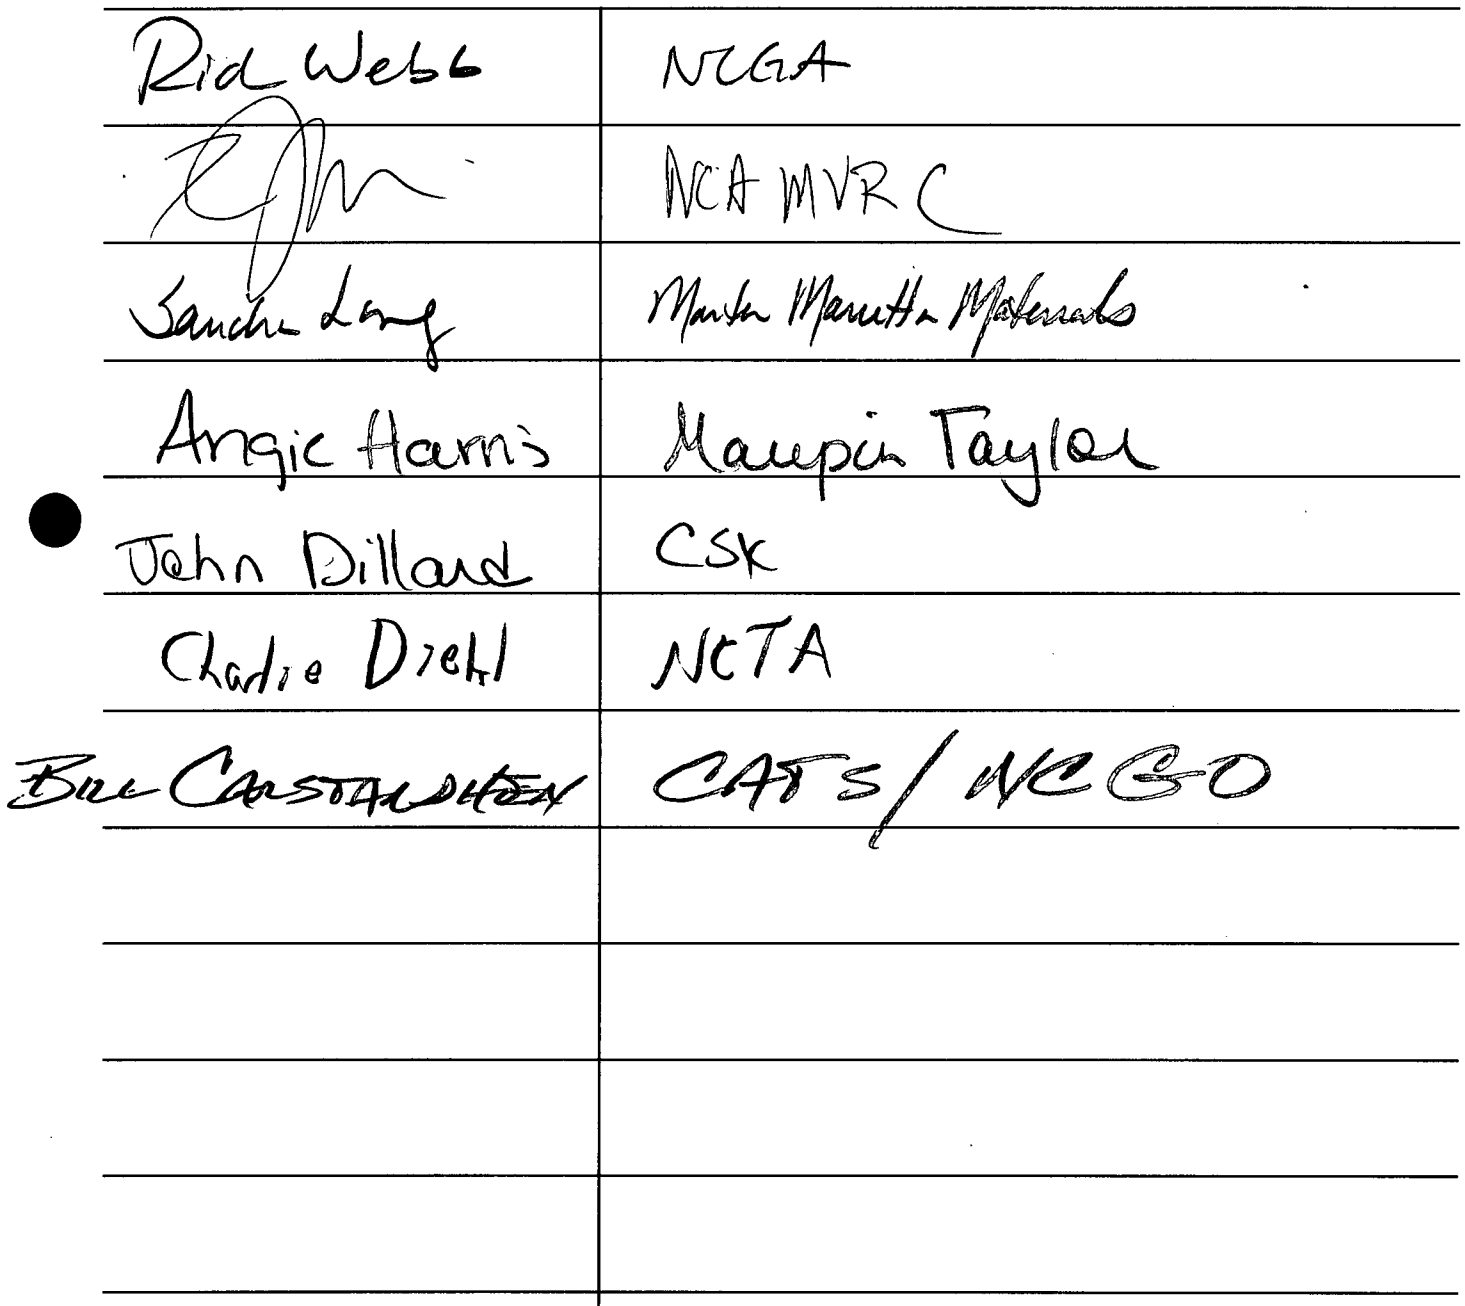 Rid Webb NCGA
NCA MVRC
Sandra Long Martin Marietta Materials
Angie Harris Maupin Taylor
John Dillard CSK
Charlie Diehl NCTA
Bill CATS/NCGO